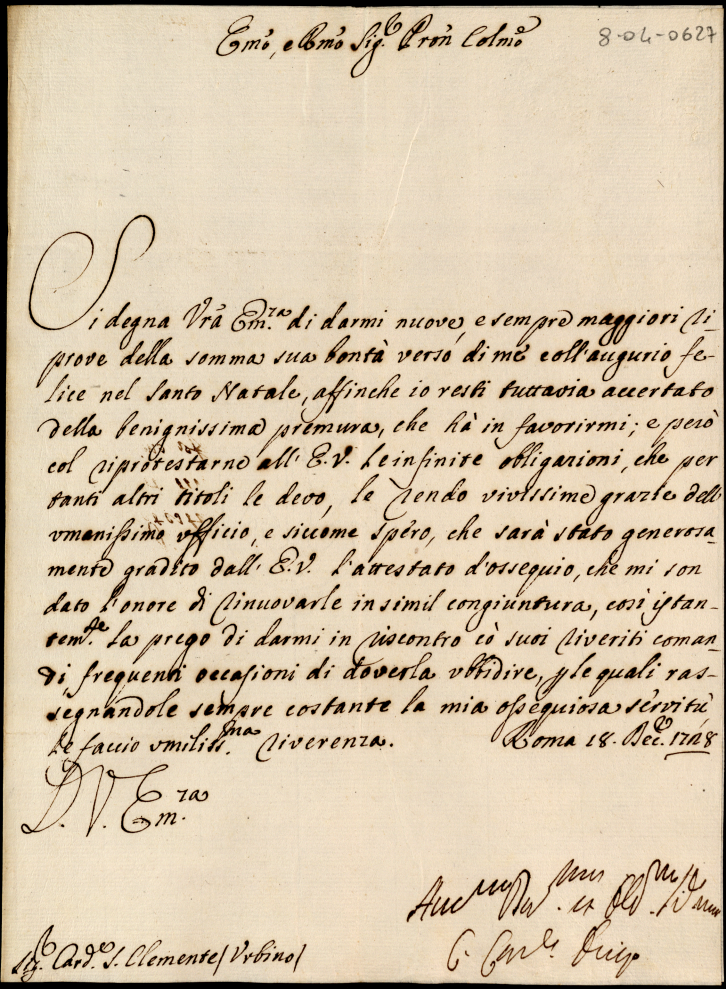 Emo, e Rmo Sig.r Pron Colmo
8-04-0627
Si degna Vrã Em.za di darmi nuove, e sempre maggiori ri-
prove della somma sua bontà verso di me coll'augurio fe-
lice nel Santo Natale, affinche io resti tuttavia accertato
della benignissima premura, che hà in favorirmi; e però
col riprotestarne all' E.V. le infinite obligazioni, che per
tanti altri titoli le devo, le rendo vivissime grazie dell'
umanissimo ufficio, e siccome spero, che sarà stato generosa-
mente gradito dall' E.V. l'attestato d'ossequio, che mi son
dato l'onore di rinuovarle in simil congiuntura, così istan-
tem.te la prego di darmi in riscontro cò suoi riveriti coman-
di frequenti occasioni di doverla ubbidire, p le quali ras-
segnandole sempre costante la mia ossequiosa servitù
le faccio umiliss.ma riverenza. Roma 18. Dec.e
D. V. Em.za
Sig.r Card.e S. Clemente / Urbino /